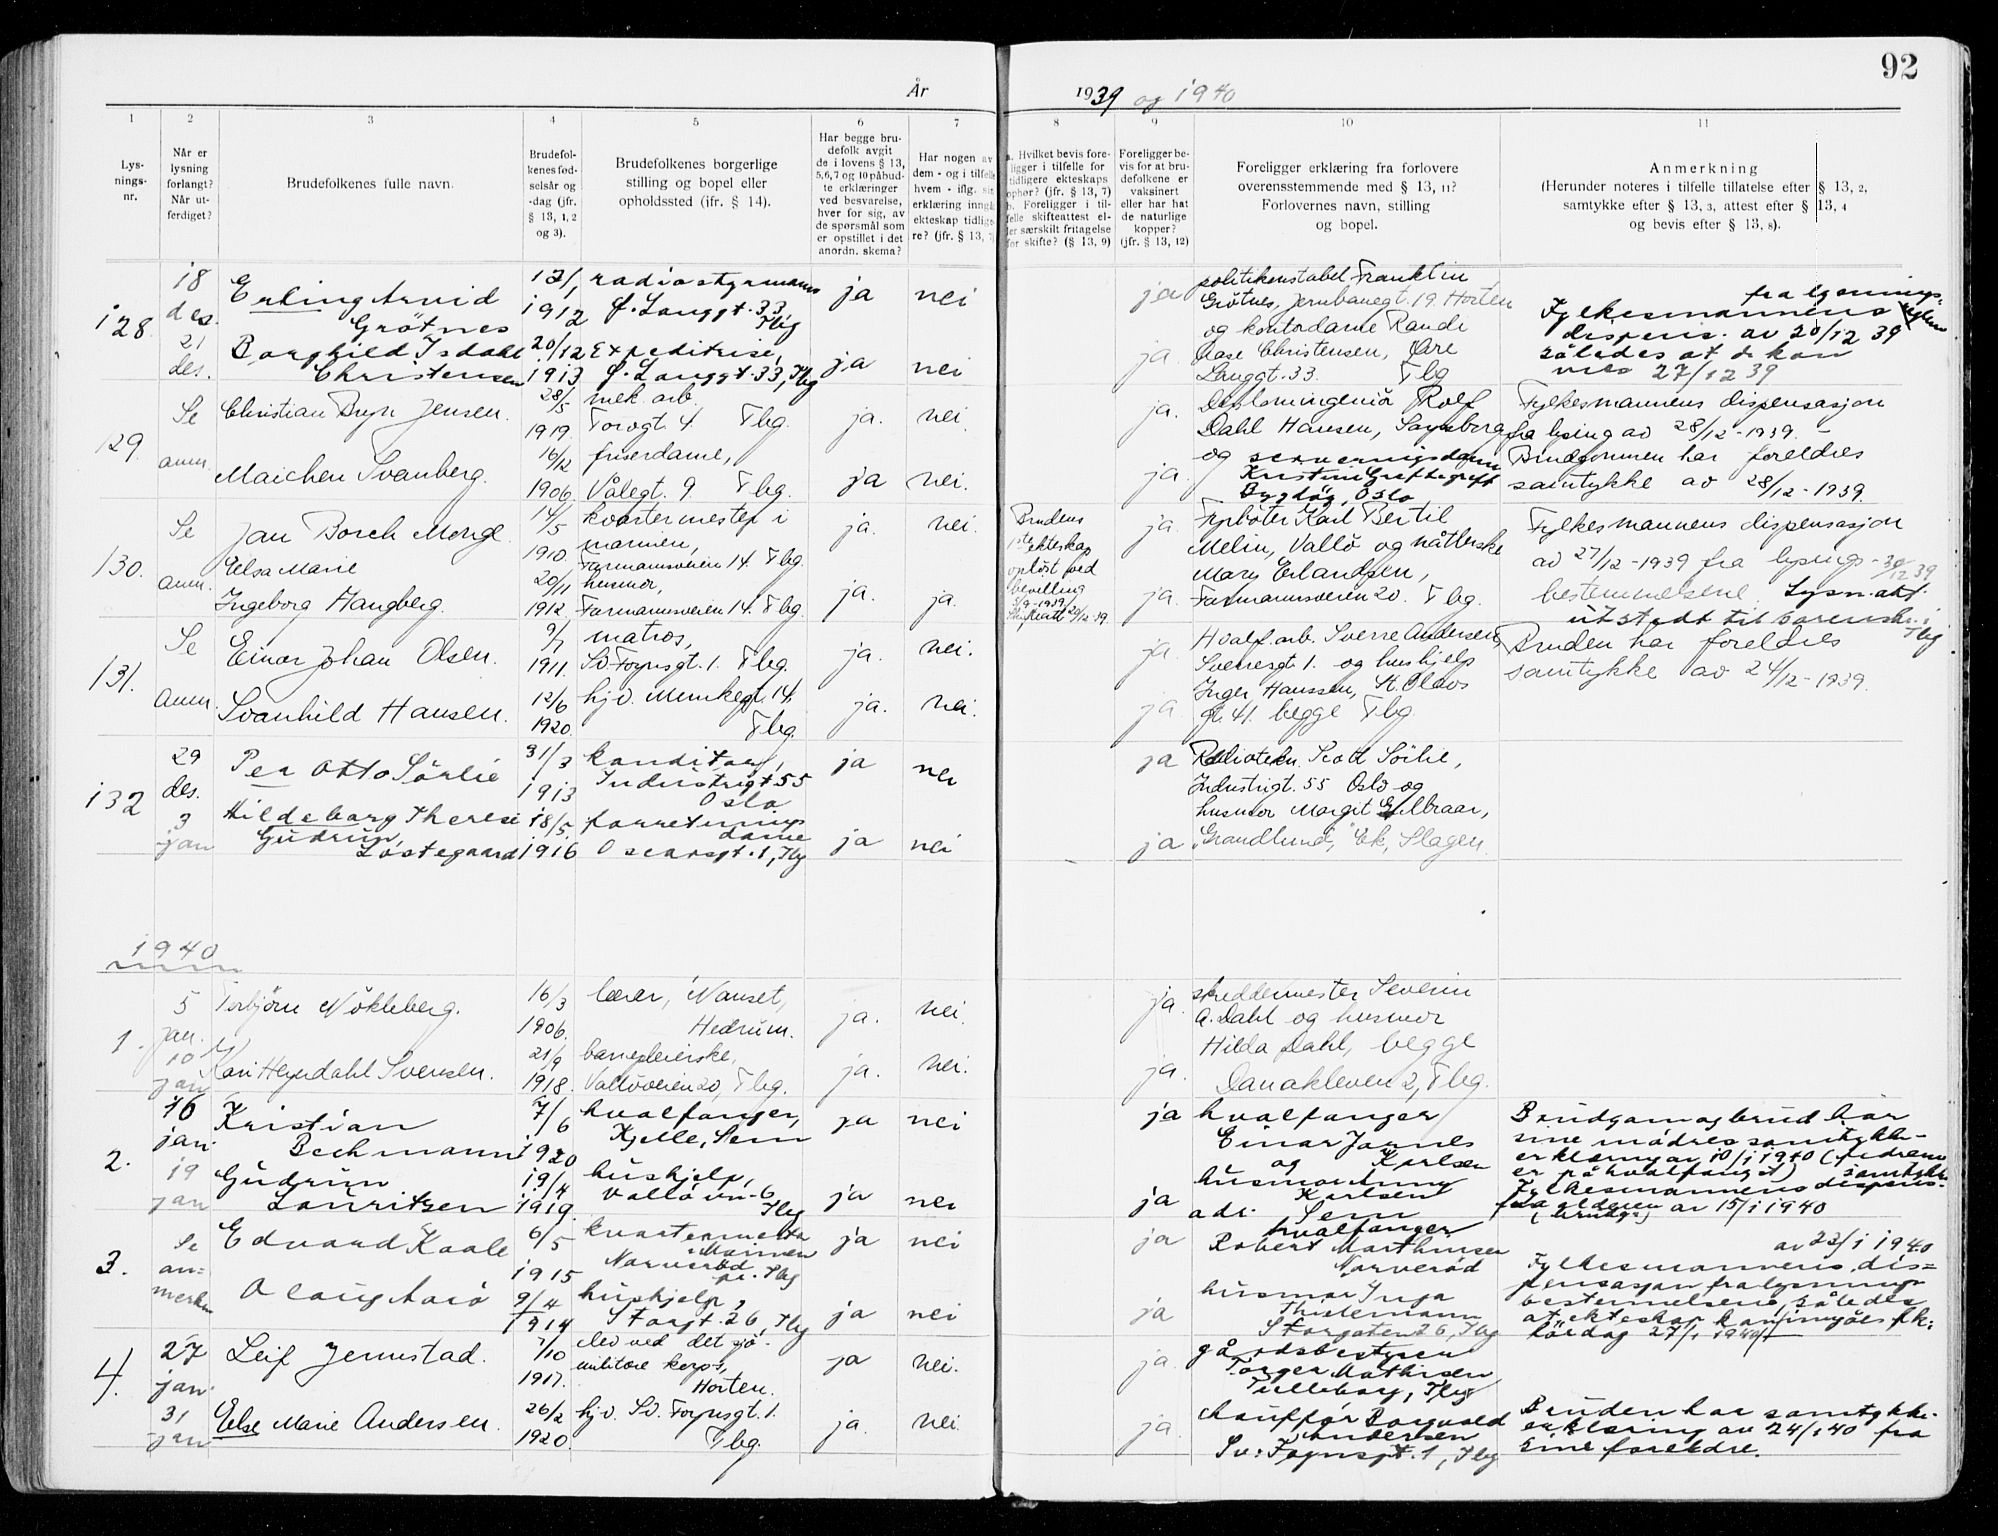 92
År 1939 og 1940
1 2 3 4 5 6 7 8 9 10 11
Lys-
nings-
nr.
Når er
lysning
forlangt?
Når ut-
ferdiget?
Brudefolkenes fulle navn.
Brudefol-
kenes fød-
selsår og
-dag (jfr.
§ 13, 1, 2
og 3).
Brudefolkenes borgerlige
stilling og bopel eller
opholdssted (jfr. § 14).
Har begge bru-
defolk avgit
de i lovens § 13,
5,6,7 og 10 påbud-
te erklæringer
ved besvarelse,
hver for sig, av
de spørsmål som
er opstillet i det
anordn. skema?
Har nogen av
dem - og i tilfelle
hvem - iflg. sin
erklæring inngå
ekteskap tidlige-
re? (jfr. § 13, 7)
a. Hvilket bevis fore-
ligger i tilfelle for
tidligere ekteskaps
ophør? (jfr. § 13, 7)
b. Foreligger i til-
felle skifteattest el-
ler særskilt fritagelse
for skifte? (§ 13, 9)
Foreligger be-
vis for at bru-
defolkene er
vaksinert
eller har hat
de naturlige
kopper?
(jfr. § 13, 12)
Foreligger erklæring fra forlovere
overensstemmende med § 13, 11?
Forlovernes navn, stilling
og bopel.
Anmerkning
(Herunder noteres i tilfelle tillatelse efter § 13, 2,
samtykke efter § 13, 3, attest efter § 13, 4
og bevis efter § 13, 8).
128.
18
des.
21
des.
Erling Arvid
Grötnes
Borghild Isdahl
Christensen
1912
20/12
1913
radiostyrmann
Ø. Langgt. 33,
Tbg
Expeditrise,
Ø. Langgt. 33, Tbg
ja nei
ja nei
ja
ja
politikonstabel Franklin
Grötnes, Jernbanegt. 19. Horten
og kontordame Randi
Aase Christensen, Øvre
Langgt. 33. Tbg
fra lysnings-
Fylkesmannens
dispens. av 20/12 39
således at de kan
vies 27/12 39
129.
Se
anm.
Christian Bryn Jensen.
Maichen Svanberg.
28/5
1919.
16/12
1906.
mek. arb.
Torvgt. 4 Tbg.
friserdame,
Vålegt. 9 Tbg.
ja. nei.
ja nei.
ja.
ja
Diplomingeniør Rolf
Dahl Hansen, Sarpsborg
og serveringsdame
Kristine
Bygdöy, Oslo
Fylkesmannens dispensasjon
fra lysing av 28/12 - 1939.
Brudgommen har foreldres
samtykke av 28/12 - 1939.
130.
Se
anm.
Jan Borch Monge
Elsa Marie
Ingeborg Haugberg.
14/5
1910.
20/11
1912
kvartermester i
marinen,
Farmannsveien 14. Tbg.
husmor,
Farmannsveien 14. Tbg.
ja. nei.
ja. ja.
Brudens
1ste ekteskap
opløst ved
bevilling
ja.
ja.
Fyrbøter Karl Bertil
Melin, Vallö og nåtlerske
Mary Erlandsen,
Farmannsveien 20. Tbg.
Fylkesmannens dispensasjon
av 27/12 - 1939 fra lysings-
bestemmelsene
30/12 39
Lysn. att.
utstedt til sorenskr. i
Tbg
131.
Se
Anm.
Einar Johan Olsen.
Svanhild Hansen.
9/7
1911.
12/6
1920.
matros,
Sv. Foynsgt. 1. Tbg.
hj.d. Munkegt. 14.
Tbg.
ja. nei.
ja. nei.
ja.
ja.
Hvalf. arb. Sverre Andersen,
Sveresgt. 1. og hushjelp
Inger Hanssen, St. Olavs
gt. 41. begge Tbg.
Bruden har foreldres
samtykke av 24/12 - 1939.
132
29
des.
3
jan
Per Otto Sörlie
Hildeborg Therese
Gudrun
Löstegaard
31/3
1913
18/5
1916
konditor,
Industrigt 55
Oslo
forretnings
dame
Oscarsgt. 1, Tbg
ja nei
ja nei
ja
ja
Sörlie,
Industrigt. 55 Oslo og
husmor Margit
"Grandlund," Ek, Slagen.
1940
1.
5
jan.
10
jan
Torbjörn Nökleberg.
Kari Heyerdahl Svensen.
16/3
1906.
21/9
1918.
lærer, Nanset,
Hedrum.
barnepleierske,
Vallöveien 20, Tbg.
ja. nei.
ja. nei.
ja.
ja.
skreddermester Severin
A. Dahl og husmor
Hilda Dahl, begge
Danakleven 2, Tbg.
2.
16
jan.
19
jan
Kristian
Bechmann
Gudrun
Lauritzen
7/6
1920
19/4
1919.
hvalfanger,
Kjelle, Sem
hushjelp,
Vallö vn. 6,
Tbg
ja nei
ja nei
ja
ja
hvalfanger
Einar Jarnes
og Karlsen
husmor Anny
Karlsen
adr. Sem
Brudgom og brud har
sine mödres samtykke-
erkläringer 10/1 1940 (fedrene
er på hvalfangst) samtykke
Fylkesmannens dispens.
fra alderen av 15/1 1940
(brudg.)
3.
Se
an-
merkn
Edvard Kaale
Olaug
6/5
1915
9/4
1914
kvartermester
i Marinen
Narveröd
pr. Tbg
hushjelp,
Storgt. 26, Tbg
ja nei
ja nei
ja
ja
hvalfanger
Robert Marthinsen
Narveröd
husmor Inga
Thulemann
Storgaten 26, Tbg
av 23/1 1940
Fylkesmannens dis-
pensasjon fra lysnings
bestemmelsene, således
at ekteskap kan inngåes fk:
lördag 27/1 1940
4.
27
jan.
31
jan
Leif Jernstad.
Else Marie Andersen.
7/10
1917.
26/2
1920.
elev ved det sjö-
militære korps,
Horten.
hj.d. Sv. Foynsgt. 1.
Tbg.
ja nei.
ja. nei.
ja.
ja.
gårdsbestyrer
Torger Mathisen
Tulleborg, Tbg
chauffør Borgvald
Andersen
Sv. Foynsgt. 1, Tbg
Bruden har samtykke-
erklæring av 24/1 40 fra
sine foreldre.